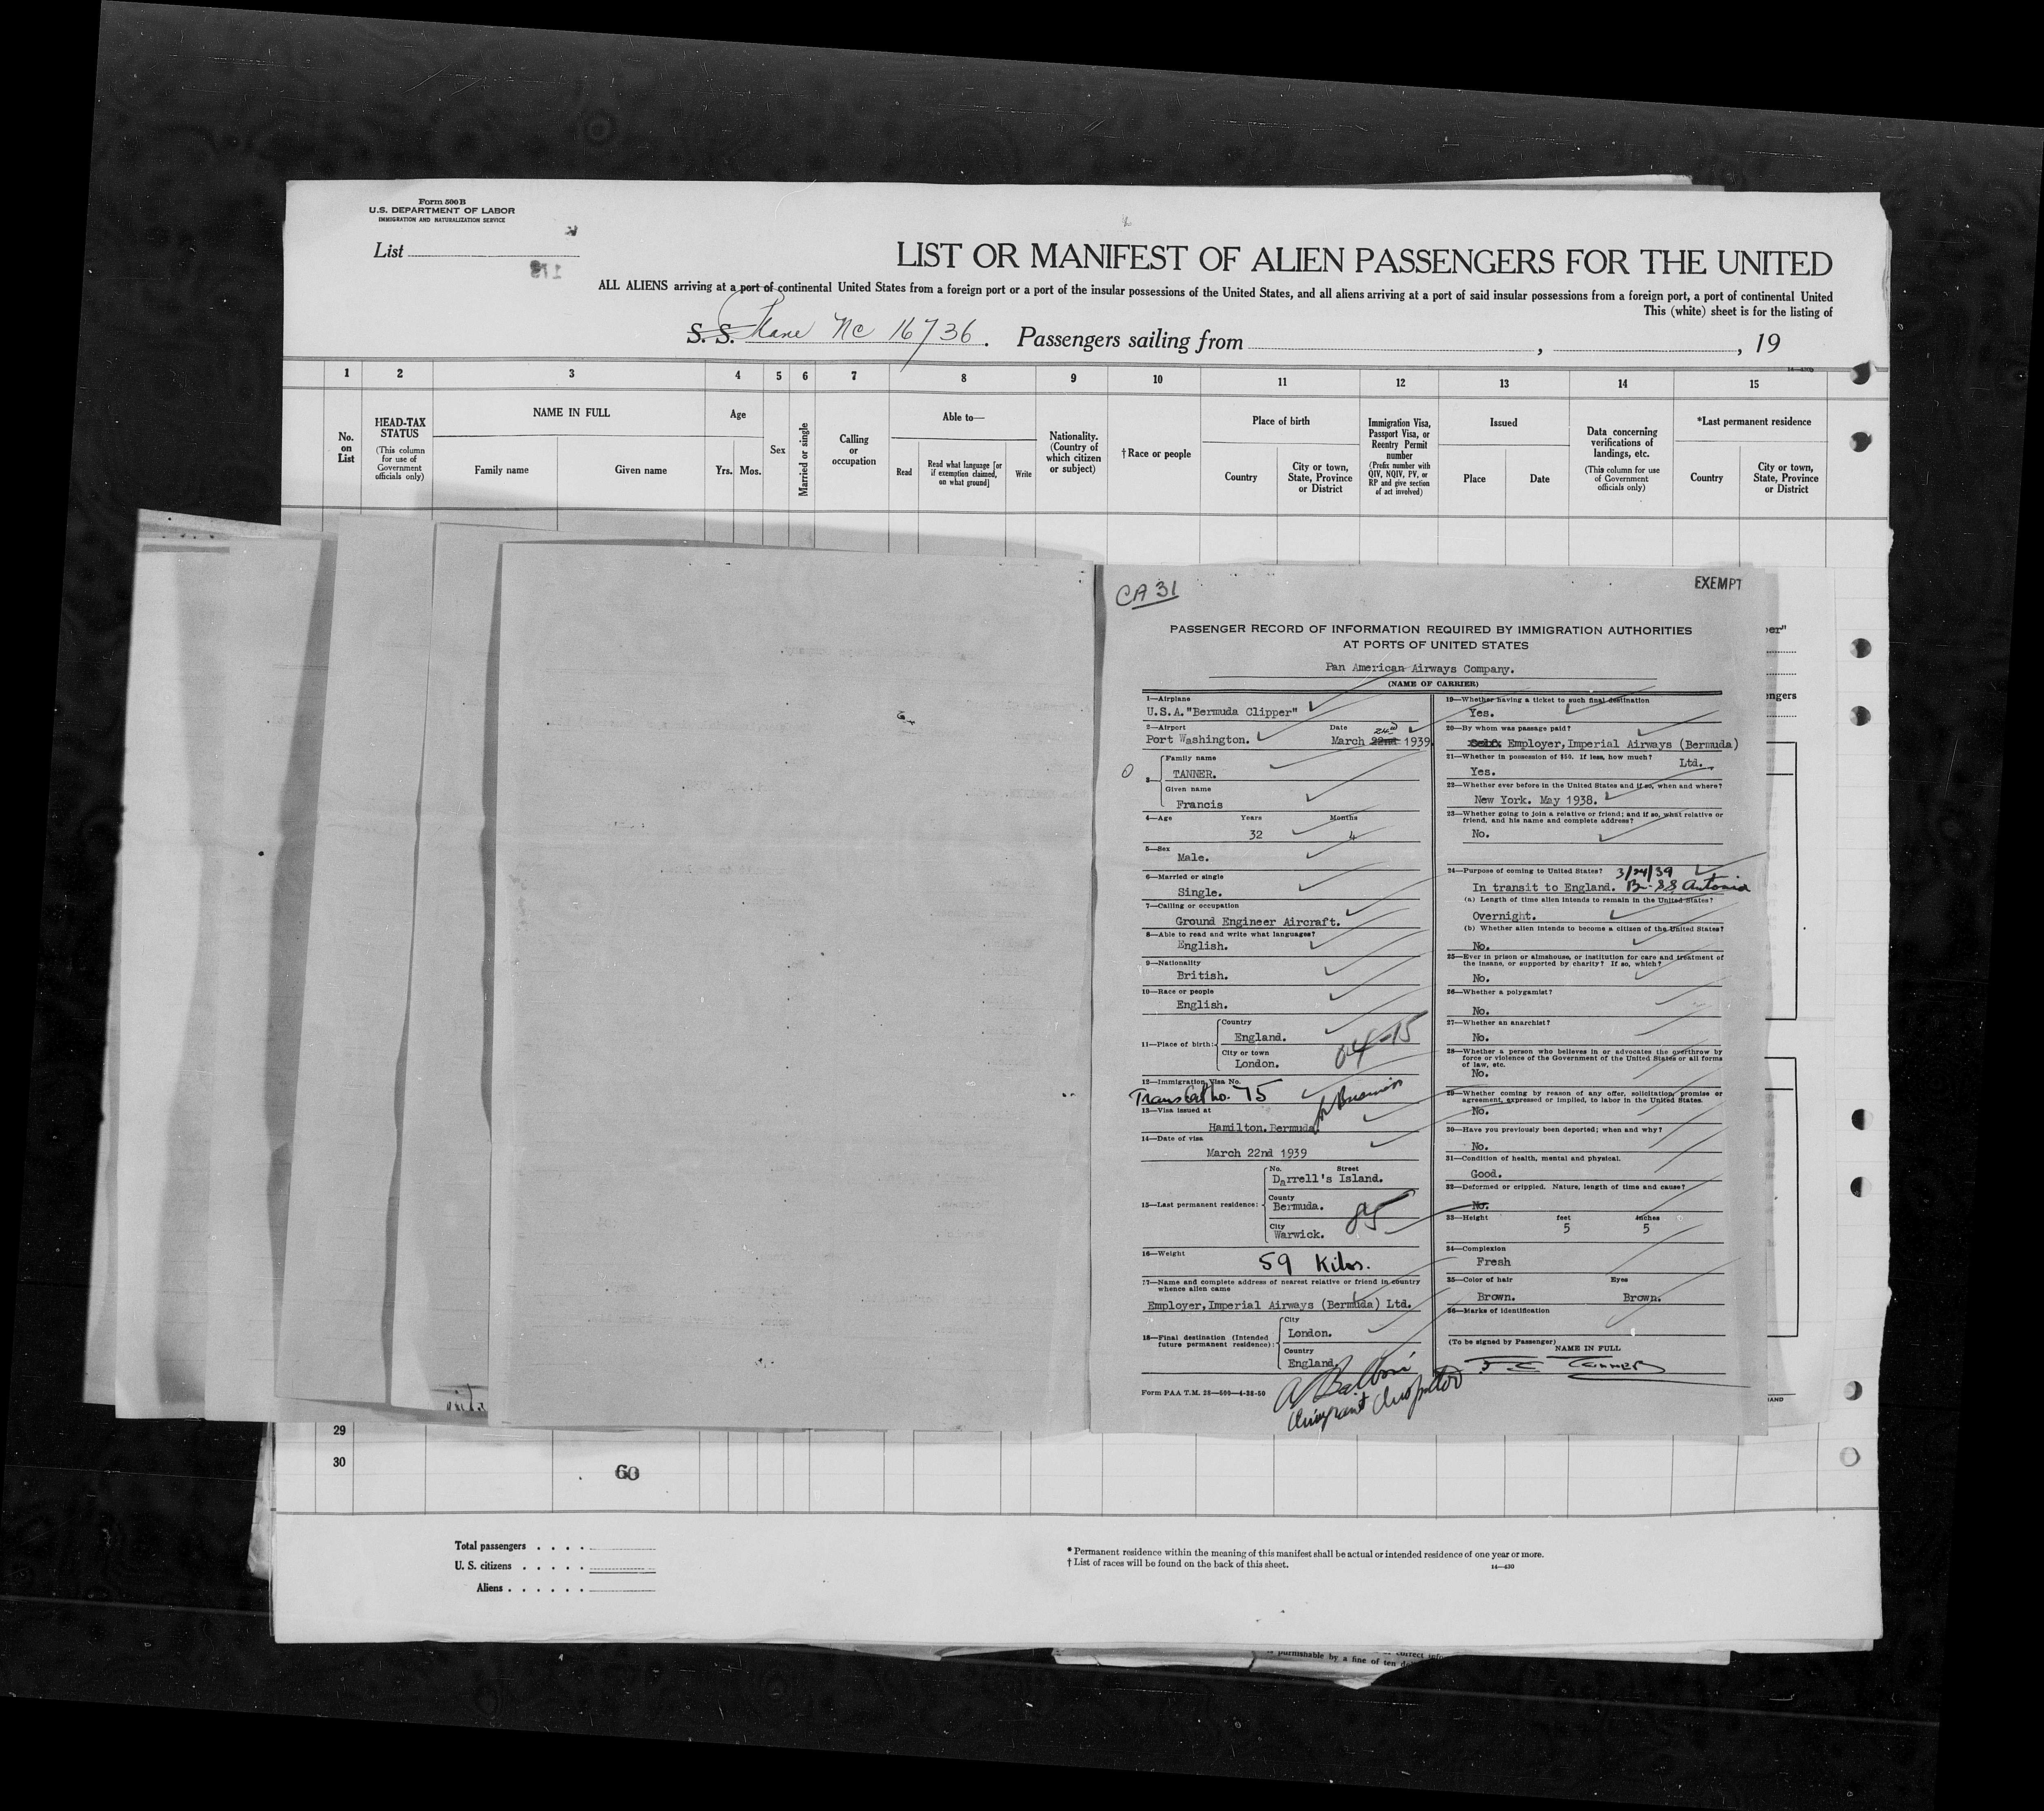 Form 500 B
U.S. DEPARTMENT OF LABOR
IMMIGRATION AND NATURALIZATION SERVICE
List
LIST OR MANIFEST OF ALIEN PASSENGERS FOR THE UNITED
ALL ALIENS arriving at a port of continental United States from a foreign port or a port of the insular possessions of the United States, and all aliens arriving at a port of said insular possessions from a foreign port, a port of continental United
This (white) sheet is for the listing of
S. S. Plane NC 16736. Passengers sailing from , , 19
1 2 3 4 5 6 7 8 9 10 11 12 13 14 15
No. on List
HEAD-TAX STATUS
(This column for use of Government officials only)
NAME IN FULL
Family name Given name
Age
Yrs. Mos.
Sex
Married or single
Calling or occupation
Able to—
Read
Read what language [or if exemption claimed, on what ground]
Write
Nationality. (Country of which citizen or subject)
†Race or people
Place of birth
Country
City or town, State, Province or District
Immigration Visa, Passport Visa, or Reentry Permit number
(Prefix number with QIV, NQIV, PV, or RP and give section of act involved)
Issued
Place Date
Data concerning verifications of landings, etc.
(This column for use of Government officials only)
*Last permanent residence
Country
City or town, State, Province or District
CA 31
EXEMPT
PASSENGER RECORD OF INFORMATION REQUIRED BY IMMIGRATION AUTHORITIES
AT PORTS OF UNITED STATES
Pan American Airways Company.
(NAME OF CARRIER)
1—Airplane
U.S.A."Bermuda Clipper"
2—Airport Date
Port Washington. March 22nd 24th 1939.
3—
Family name
TANNER.
Given name
Francis
4—Age Years Months
32 4
5—Sex
Male.
6—Married or single
Single.
7—Calling or occupation
Ground Engineer Aircraft.
8—Able to read and write what languages?
English.
9—Nationality
British.
10—Race or people
English.
11—Place of birth:
Country
England.
City or town
London.
04-15
12—Immigration Visa No.
Trans Cert no. 75
13—Visa issued at
Hamilton.Bermuda.
for Business
14—Date of visa
March 22nd 1939
15—Last permanent residence:
No. Street
Darrell's Island.
County
Bermuda.
City
Warwick.
85
16—Weight
59 Kilos.
17—Name and complete address of nearest relative or friend in country
whence alien came
Employer,Imperial Airways (Bermuda) Ltd.
18—Final destination (Intended
future permanent residence):
City
London.
Country
England.
Form PAA T.M. 28—500—4-38-50
Immigrant Inspector
19—Whether having a ticket to such final destination
Yes.
20—By whom was passage paid?
Self. Employer,Imperial Airways (Bermuda)
Ltd.
21—Whether in possession of $50. If less, how much?
Yes.
22—Whether ever before in the United States and if so, when and where?
New York. May 1938.
23—Whether going to join a relative or friend; and if so, what relative or
friend, and his name and complete address?
No.
24—Purpose of coming to United States? 3/24/39
In transit to England. Br. SS Antonia
(a) Length of time alien intends to remain in the United States?
Overnight.
(b) Whether alien intends to become a citizen of the United States?
No.
25—Ever in prison or almshouse, or institution for care and treatment of
the insane, or supported by charity? If so, which?
No.
26—Whether a polygamist?
No.
27—Whether an anarchist?
No.
28—Whether a person who believes in or advocates the overthrow by
force or violence of the Government of the United States or all forms
of law, etc.
No.
29—Whether coming by reason of any offer, solicitation, promise or
agreement, expressed or implied, to labor in the United States.
No.
30—Have you previously been deported; when and why?
No.
31—Condition of health, mental and physical.
Good.
32—Deformed or crippled. Nature, length of time and cause?
No.
33—Height feet inches
5 5
34—Complexion
Fresh
35—Color of hair Eyes
Brown. Brown.
36—Marks of identification
(To be signed by Passenger)
NAME IN FULL
F C Tanner
29
30
60
Total passengers
U. S. citizens
Aliens
* Permanent residence within the meaning of this manifest shall be actual or intended residence of one year or more.
† List of races will be found on the back of this sheet.
14—430
is punishable by a fine of ten